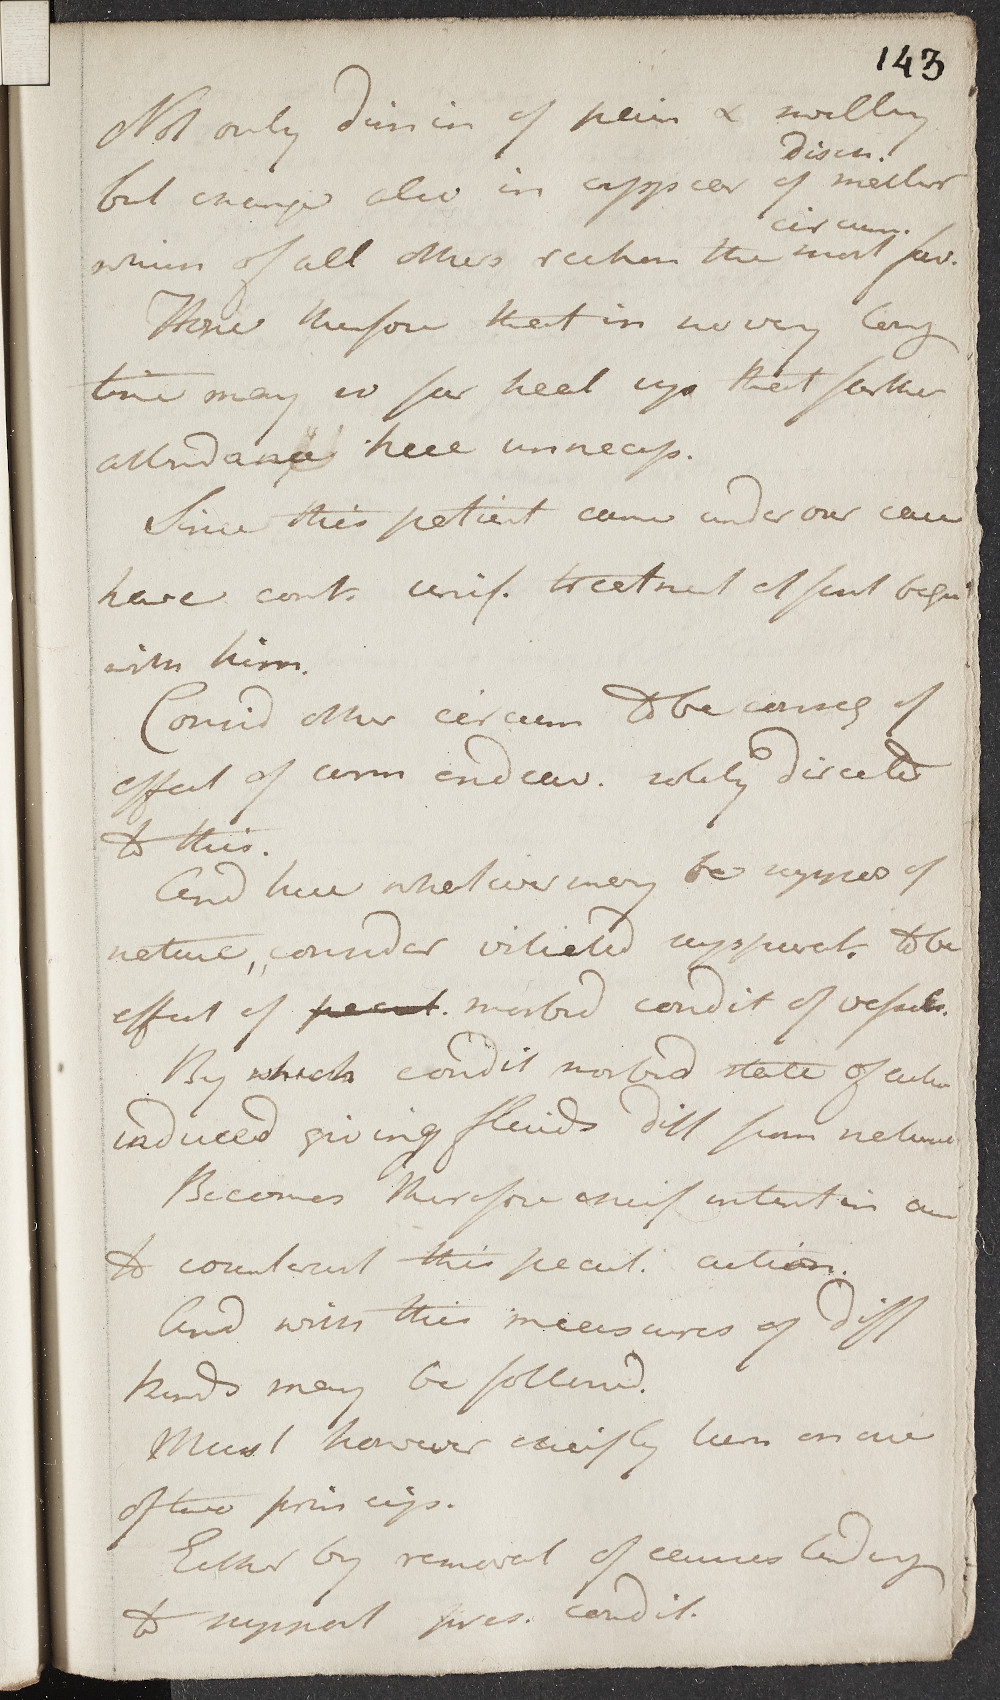 143
Not only dimin of pain & swelling
discn.
but change also in appear of matter
circum.
which of all others reckon the most fav.
Hope therefore that in no very long
time may so far heal up that farther
attendance here unnecess.
Since this patient came under our care
have cont. unif. treatment at first begun
with him.
Consid other circum to be conseq of
effect of ulcer endeav. solely directed
to this.
And here whatever may be suppos of
nature, consider vitiated suppurat. to be
effect of morbid condit of vessels.
By which condit morbid state of action
induced giving fluids diff from natural
Becomes therefore chief intent in cure
to counteract this pecul. action.
And with this measures of diff
kinds may be followed.
Must however chiefly turn on one
of two princip.
Either by removal of causes tending
to support pres. condit.